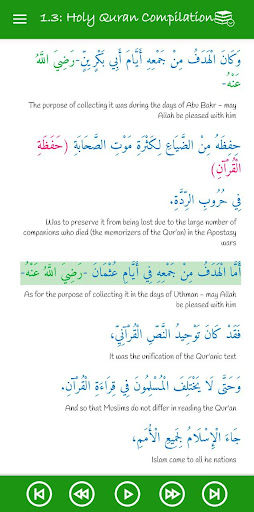 1.3: Holy Quran Compilation
وَكَانَ الْهَدَفُ مِنْ جَمْعِهِ أَيَّامَ أَبِي بَكْرٍ -رَضِيَ اللَّهُ
عَنْهُ-
The purpose of collecting it was during the days of Abu Bakr - may
Allah be pleased with him
حِفِظَهُ مِنَ الضَّيَاعِ لِكَثْرَةِ مَوْتِ الصَّحَابَةِ (حَفَظَةِ
الْقُرْآنِ)
فِي حُرُوبِ الرِّدَّةِ.
Was to preserve it from being lost due to the large number of
companions who died (the memorizers of the Qur'an) in the Apostasy
wars.
أَمَّا الْهَدَفُ مِنْ جَمْعِهِ فِي أَيَّامِ عُثْمَانَ -رَضِيَ اللَّهُ عَنْهُ-
As for the purpose of collecting it in the days of Uthman - may Allah
be pleased with him
فَقَدْ كَانَ تَوْحِيدُ النَّصِّ الْقُرْآنِيِّ،
It was the unification of the Qur'anic text
وَحَتَّى لَا يَخْتَلِفَ الْمُسْلِمُونَ فِي قِرَاءَةِ الْقُرْآنِ.
And so that Muslims do not differ in reading the Qur'an
جَاءَ الْإِسْلَامُ لِجَمِيعِ الْأُمَمِ،
Islam came to all he nations